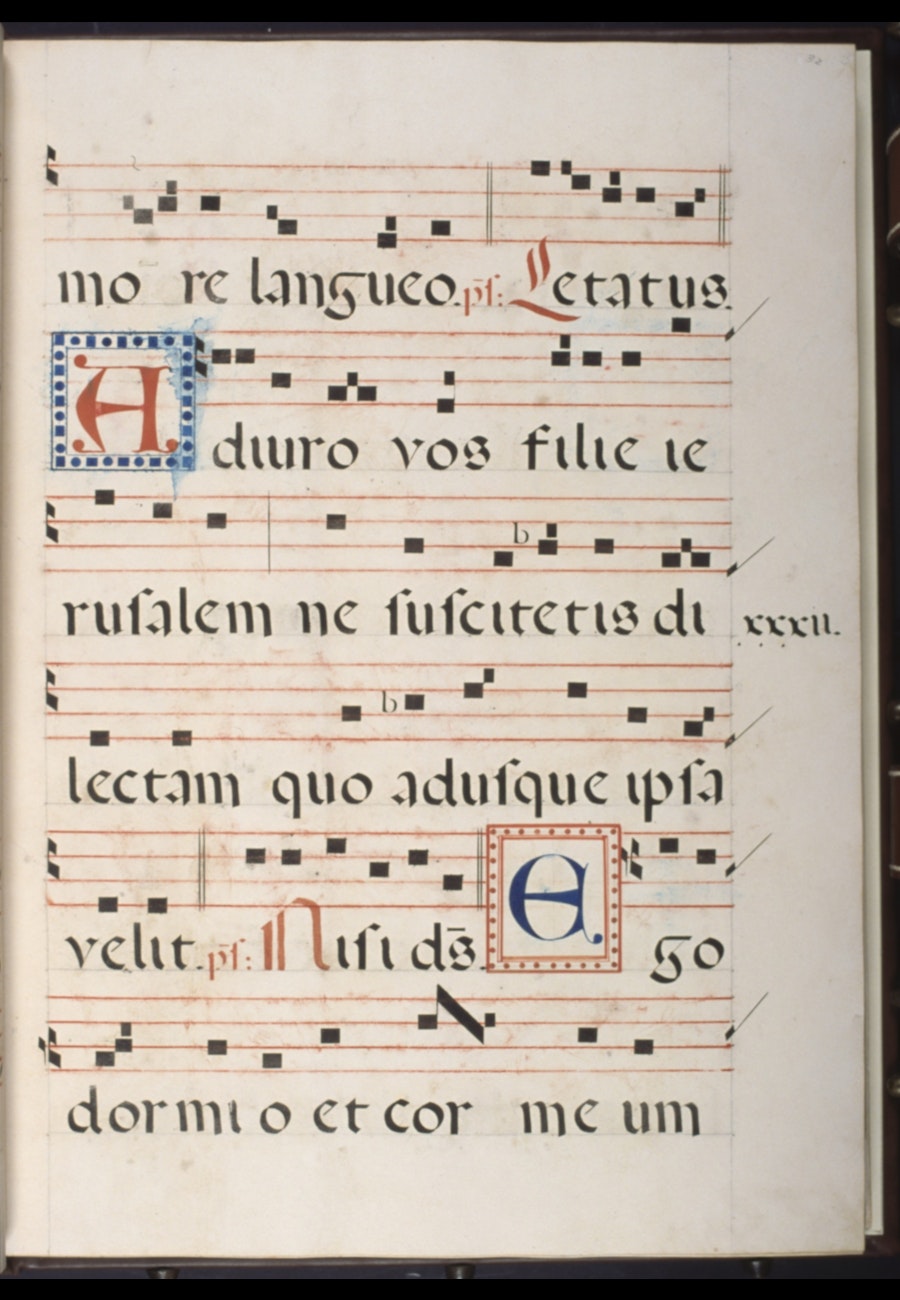 32
mo re langueo. ps: Letatus.
b
Adiuro vos filie ie
b
ruſalem ne ſuſcitetis di xxxii.
lectam quo aduſque ipſa
velit. ps: Niſi dūs. Ego
dormi o et cor me um